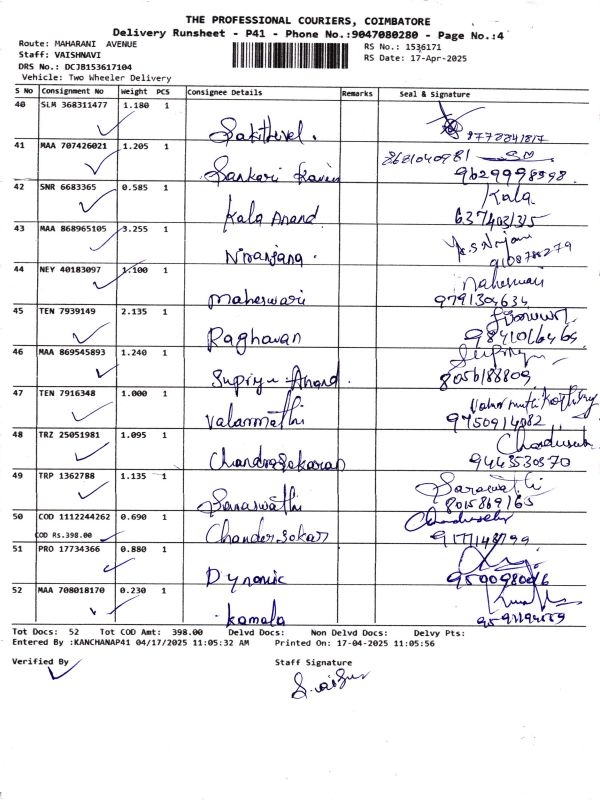 THE PROFESSIONAL COURIERS, COIMBATORE
Delivery Runsheet - P41 - Phone No.:9047080280 - Page No.:4
Route: MAHARANI AVENUE
RS No.: 1536171
Staff: VAISHNAVI
RS Date: 17-Apr-2025
DRS No.: DCJB153617104
Vehicle: Two Wheeler Delivery
S No Consignment No Weight PCS Consignee Details Remarks Seal & Signature
40 SLM 368311477 1.180 1
Sakthivel.
41 MAA 707426021 1.205 1
8681040981
Sankari Kavin
9629998598
42 SNR 6683365 0.585 1
Kala
Kala Anand
43 MAA 868965105 3.255 1
Niranjana.
44 NEY 40183097 1.100 1
Maheswari
9791304634
45 TEN 7939149 2.135 1
Raghavan
9841016465
46 MAA 869545893 1.240 1
Supriya Anand.
8056188809
47 TEN 7916348 1.000 1
Valarmathi
9750914082
48 TRZ 25051981 1.095 1
Chandrasekaran
9443530570
49 TRP 1362788 1.135 1
Saraswathi
Saraswathi
8015869165
50 COD 1112244262 0.690 1
COD Rs.398.00
Chandersekar
51 PRO 17734366 0.880 1
Dynamic
52 MAA 708018170 0.230 1
Kamala
Tot Docs: 52 Tot COD Amt: 398.00 Delvd Docs: Non Delvd Docs: Delvy Pts:
Entered By :KANCHANAP41 04/17/2025 11:05:32 AM Printed On: 17-04-2025 11:05:56
Verified By
Staff Signature